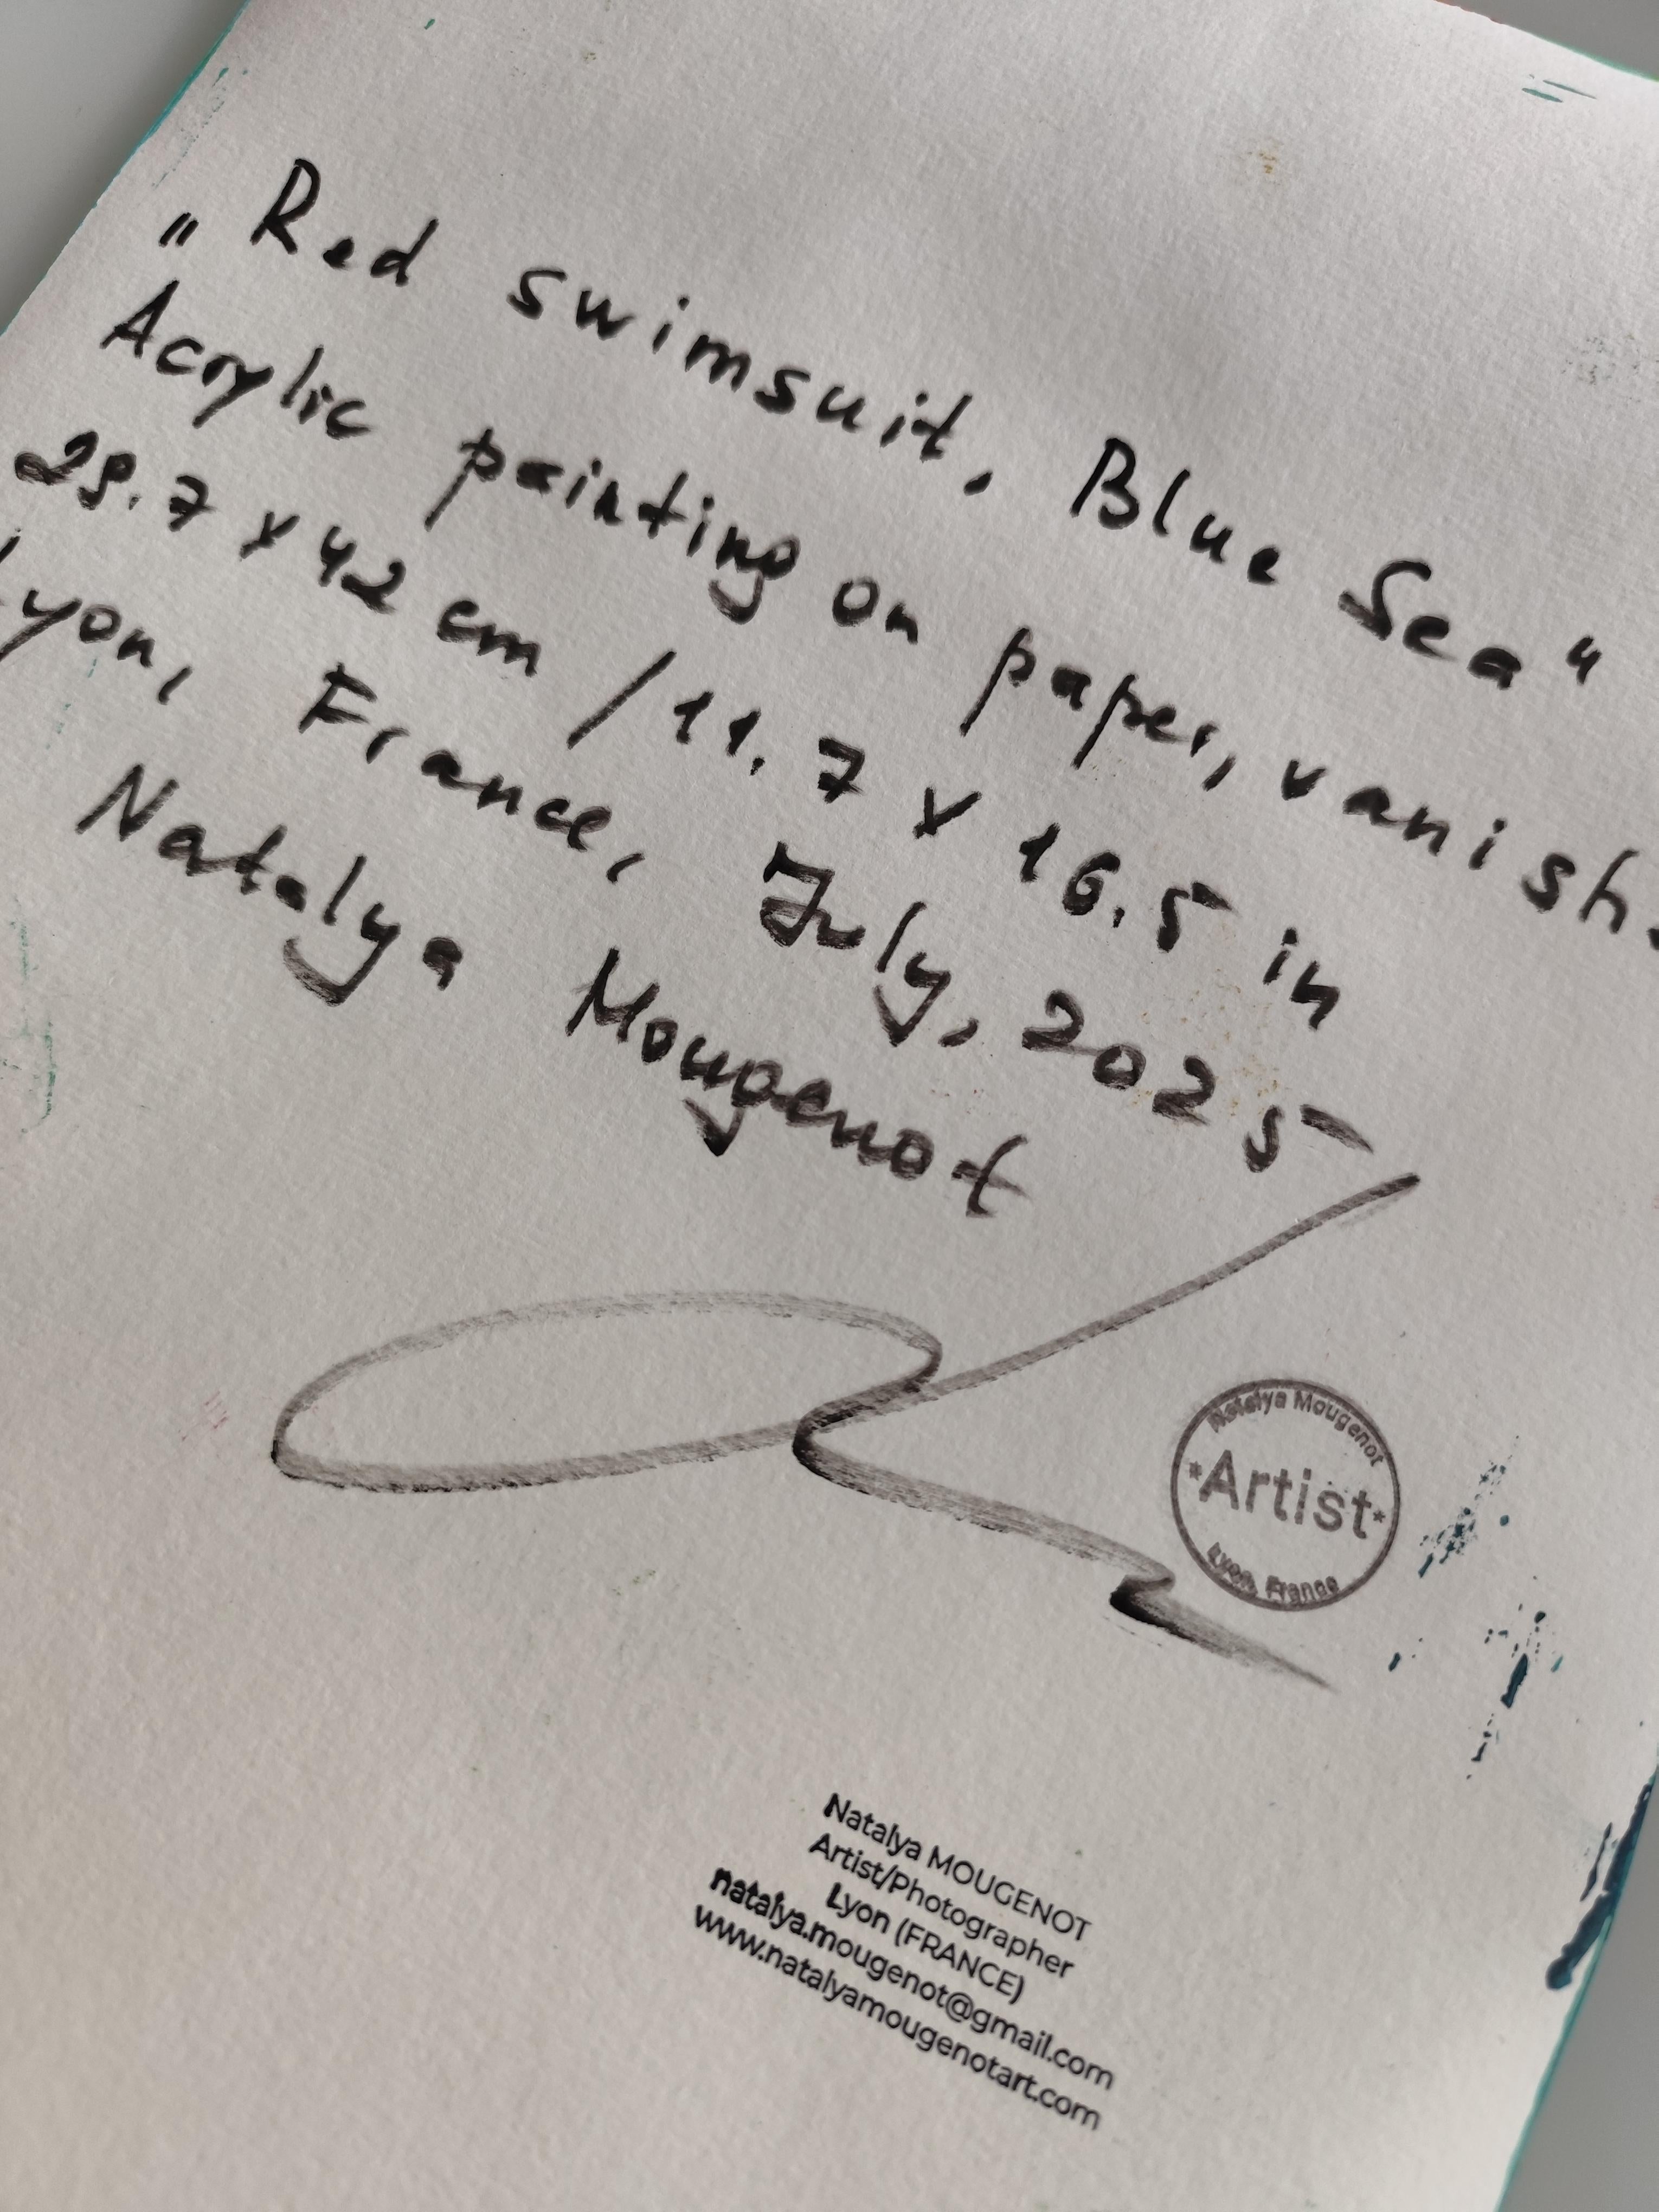 „Red swimsuit. Blue Sea“
Acrylic painting on paper, vanish.
29.7 x 42 cm / 11.7 x 16.5 in
Lyon, France, July, 2025
Natalya Mougenot
Natalya Mougenot
*Artist*
Lyon, France
Natalya MOUGENOT
Artist/Photographer
Lyon (FRANCE)
natalya.mougenot@gmail.com
www.natalyamougenotart.com